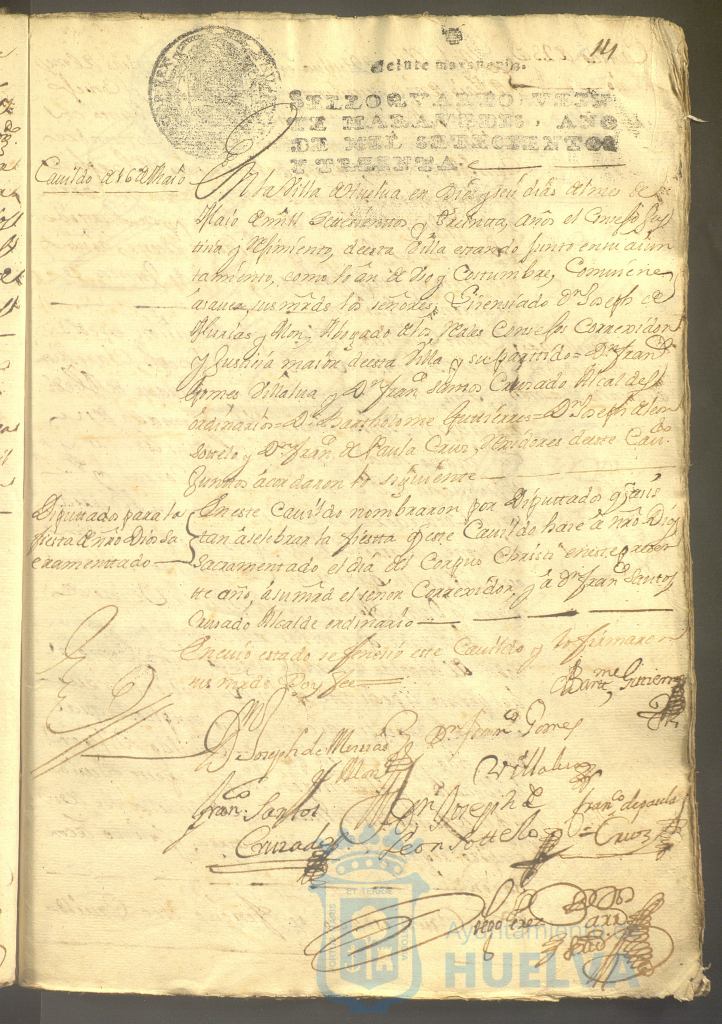 141
Veinte maravedis.
SELLO QVARTO, VEIN
TE MARAVEDIS, AÑO
DE MIL SETECIENTOS
Y TREINTA.
Cavildo de 16 de Maio
En la Villa de Huelva, en Diez y seis dias del mes de
Maio de mill setecienttos y treintta, años el Consejo Jus
ticia y Regimiento, de esta Villa estando juntto en su aiun
tamiento, como lo an de Uso y Costumbre, Combiene
a saver, sus mrds los señores, Lizensiado Dn Joseph de
Murias y Mon, Abogado de los Reales Consejos Correxidor
y Justicia maior de esta Villa y su partido = Dn Franco
Gomes Villalva y Dn Franco Santos Cruzado Alcaldes
ordinarios = Dn Bartholome Gutierres = Dn Joseph de Leon
Sottelo y Dn Franco de Paula Cruz, Rexidores de este Cavdo
Junttos acordaron lo siguiente
Diputtados para la
fiesta de nro Dios Sa
cramenttado
En este Cavildo nombraron por Diputtados q asis
tan a selebrar la fiestta q este Cavildo hase a nro Dios
Sacramentado el dia del Corpus Christi en este presen
te año, a su mrd el señor Correxidor, y a Dn Franco Santos
Cruzado Alcalde ordinario
En cuio estado se fenesio este Cavildo y lo firmaron
sus mrds Doy fee
Barme Gutierres
D Joseph de Murias
y Mon
Dn Franco Gomes
Villalva
Franco Santos
Cruzado
Dn Joseph de
Leon Sottelo
Franco de paula
Cruz
Diego Perez
ET TERRAE
Ayuntamiento de
HUELVA